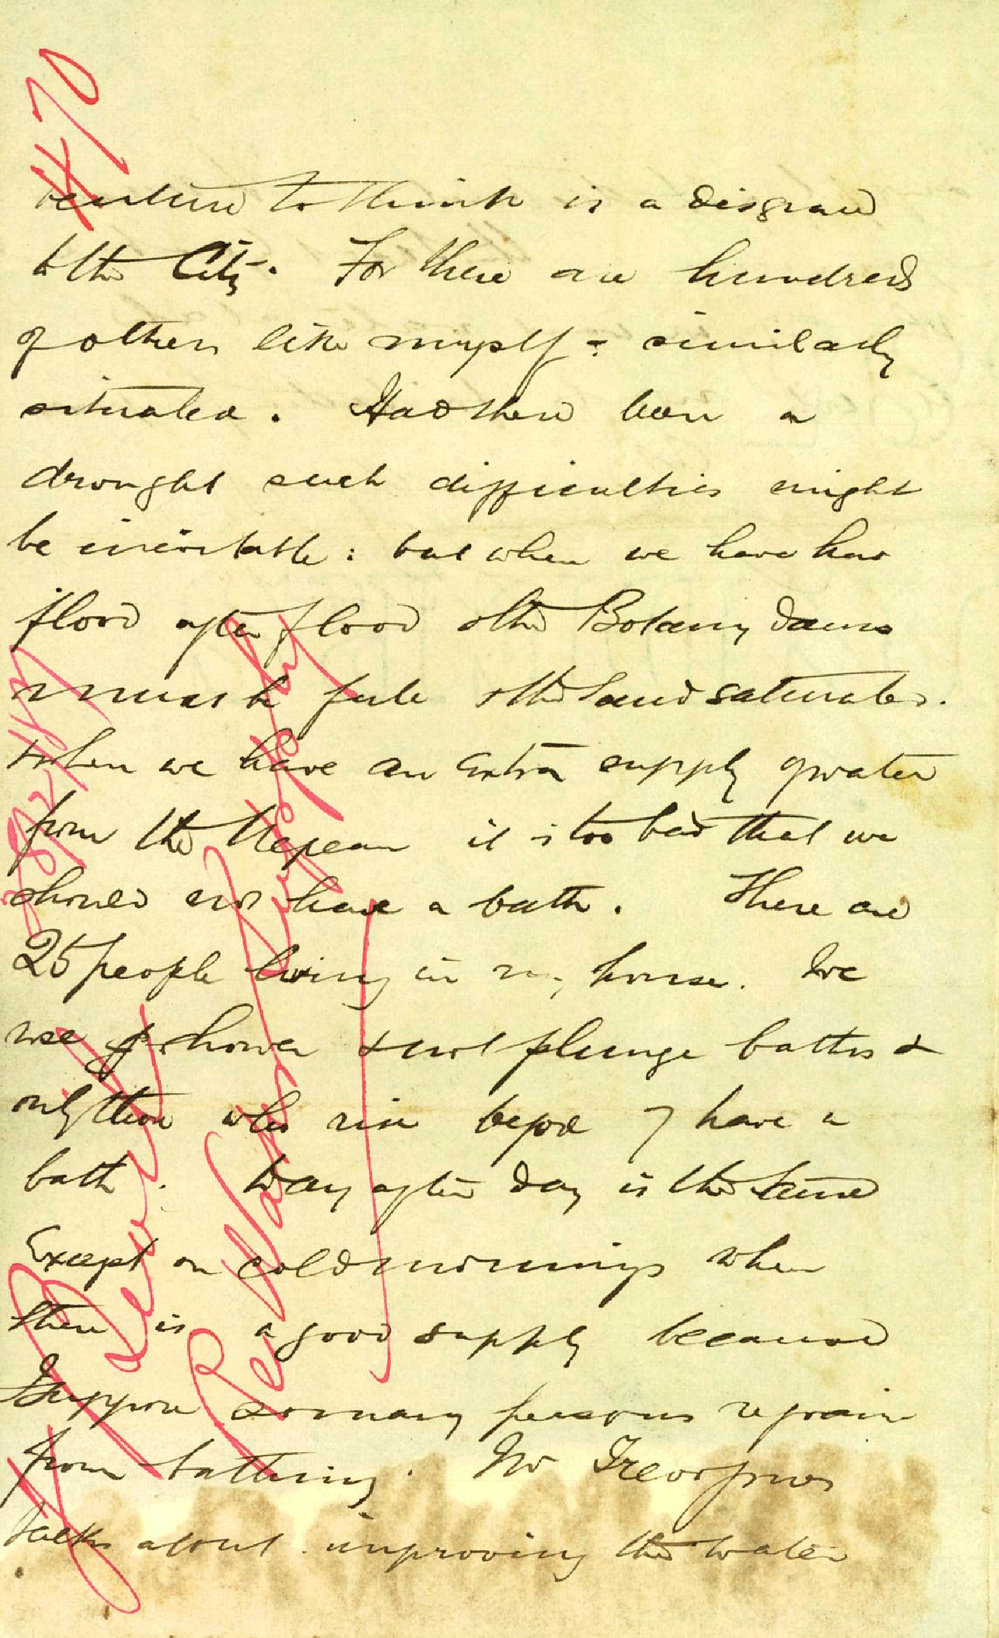 venture to think is a disgrace
to the City. For there are hundreds
of others like myself - similarly
situated. Had there been a
drought such difficulties might
be inevitable: but when we have had
flood after flood & the Botany dams
must be full & the land saturated.
When we have an extra supply of water
from the Nepean it is too bad that we
should not have a bath. There are
25 people living in my house. We
use shower & not plunge baths &
only those who rise before 7 have a
bath. Day after day is the same
Except on cold mornings when
there is a good supply because
I suppose so many persons refrain
from bathing. Mr Trevor Jones
talks about improving the water
470
J Dewar
Re Water Supply